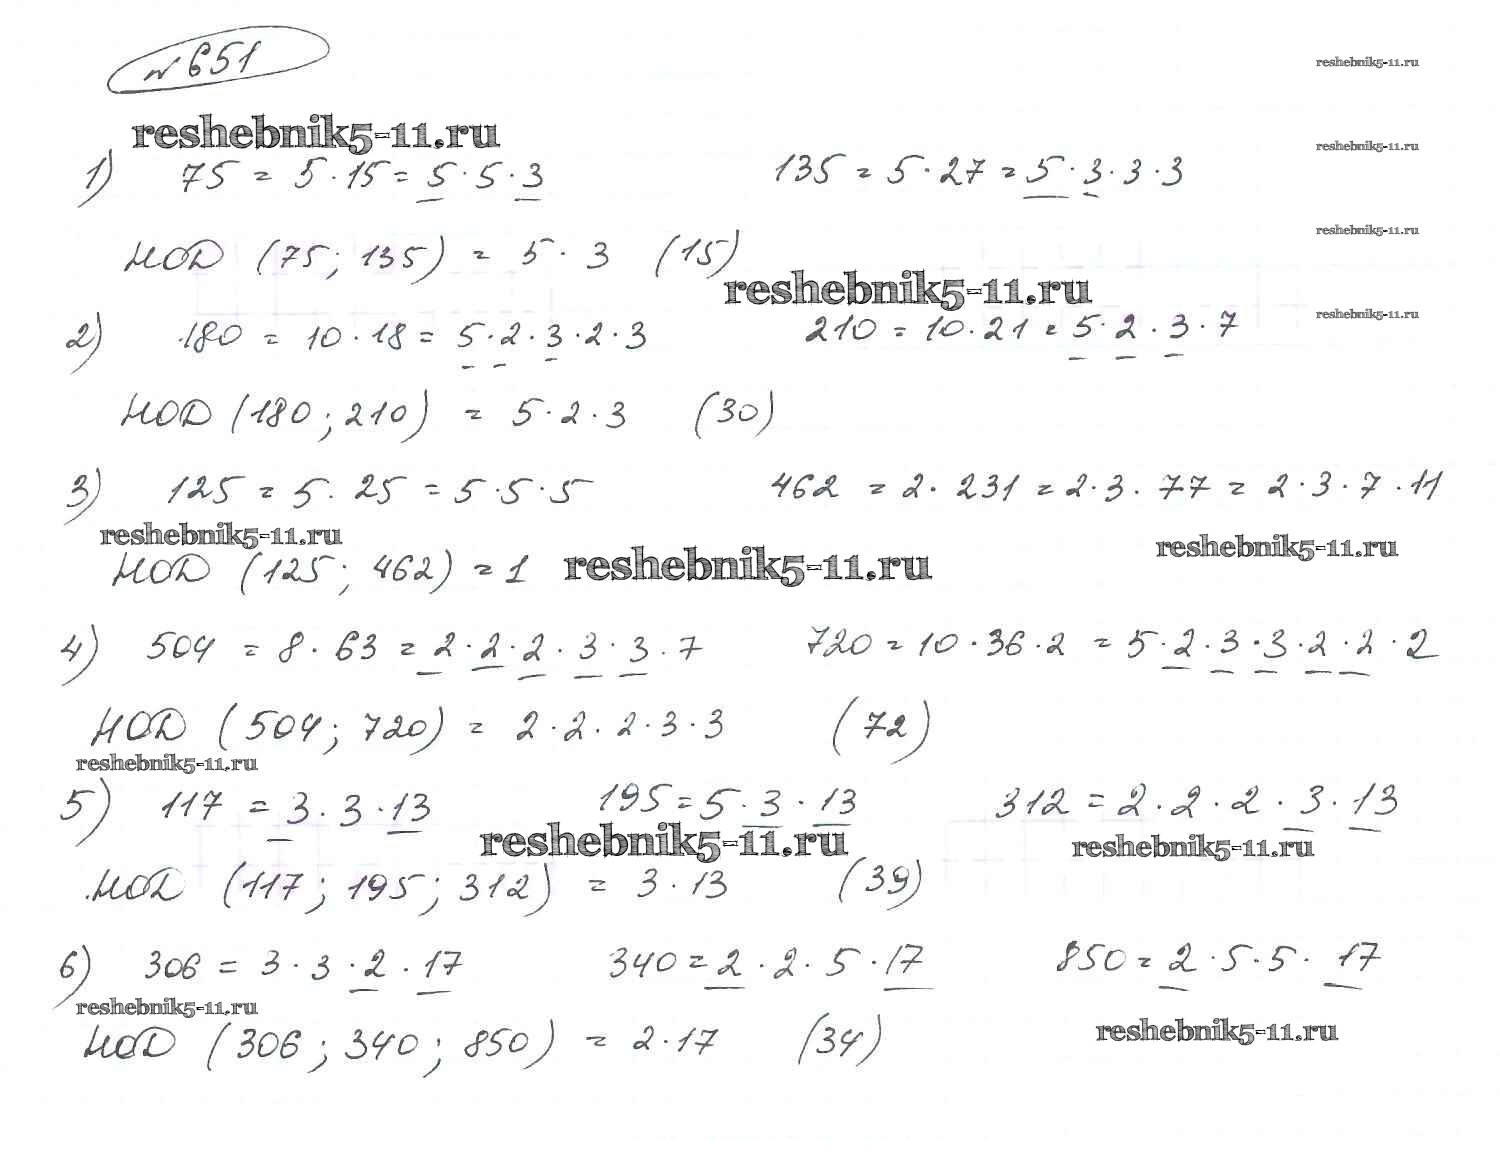 № 651
reshebnik5-11.ru
reshebnik5-11.ru
reshebnik5-11.ru
1) 75 = 5 · 15 = 5 · 5 · 3 135 = 5 · 27 = 5 · 3 · 3 · 3
НОД (75; 135) = 5 · 3 (15)
reshebnik5-11.ru
reshebnik5-11.ru
reshebnik5-11.ru
2) 180 = 10 · 18 = 5 · 2 · 3 · 2 · 3 210 = 10 · 21 = 5 · 2 · 3 · 7
НОД (180; 210) = 5 · 2 · 3 (30)
3) 125 = 5 · 25 = 5 · 5 · 5 462 = 2 · 231 = 2 · 3 · 77 = 2 · 3 · 7 · 11
reshebnik5-11.ru
reshebnik5-11.ru
НОД (125; 462) = 1 reshebnik5-11.ru
4) 504 = 8 · 63 = 2 · 2 · 2 · 3 · 3 · 7 720 = 10 · 36 · 2 = 5 · 2 · 3 · 3 · 2 · 2 · 2
НОД (504; 720) = 2 · 2 · 2 · 3 · 3 (72)
reshebnik5-11.ru
5) 117 = 3 · 3 · 13 195 = 5 · 3 · 13 312 = 2 · 2 · 2 · 3 · 13
reshebnik5-11.ru
reshebnik5-11.ru
НОД (117; 195; 312) = 3 · 13 (39)
6) 306 = 3 · 3 · 2 · 17 340 = 2 · 2 · 5 · 17 850 = 2 · 5 · 5 · 17
reshebnik5-11.ru
reshebnik5-11.ru
НОД (306; 340; 850) = 2 · 17 (34)